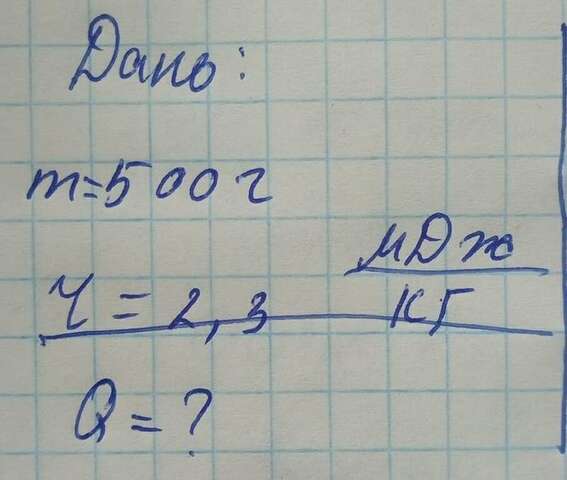 Дано:
m=500г
r = 2,3 МДж/кг
Q = ?